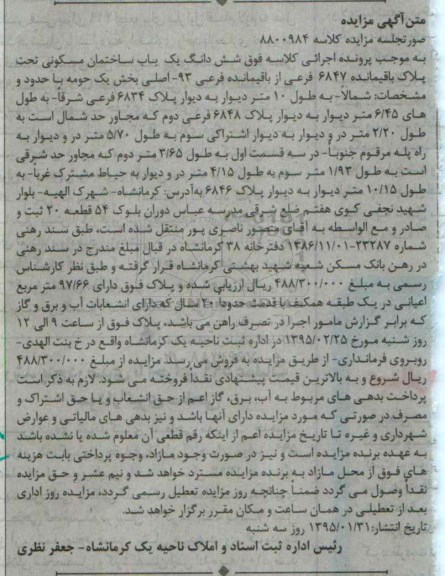 متن آگهی مزایده
صورتجلسه مزایده کلاسه ۸۸۰۰۹۸۴
به موجب پرونده اجرائی کلاسه فوق شش دانگ یک باب ساختمان مسکونی تحت
پلاک باقیمانده ۶۸۴۷ فرعی از باقیمانده فرعی ۹۳- اصلی بخش یک حومه با حدود و
مشخصات: شمالاً- به طول ۱۰ متر دیوار به دیوار پلاک ۶۸۳۴ فرعی شرقاً- به طول
های ۶/۴۵ متر دیوار به دیوار پلاک ۶۸۴۸ فرعی دوم که مجاور حد شمال است به
طول ۲/۲۰ متر در و دیوار به دیوار اشتراکی سوم به طول ۵/۷۰ متر در و دیوار به
راه پله مرقوم جنوباً- در سه قسمت اول به طول ۳/۶۵ متر دوم که مجاور حد شرقی
است به طول ۱/۹۳ متر سوم به طول ۴/۱۵ متر در و دیوار به حیاط مشترک غرباً- به
طول ۱۰/۱۵ متر دیوار به دیوار پلاک ۶۸۴۶ به آدرس: کرمانشاه- شهرک الهیه- بلوار
شهید نجفی کوی هفتم ضلع شرقی مدرسه عباس دوران بلوک ۵۴ قطعه ۲۰ ثبت و
صادر و مع الواسطه به آقای منصور ناصری پور منتقل شده است، طبق سند رهنی
شماره ۲۳۲۸۷-۱۳۸۶/۱۱/۰۱ دفترخانه ۳۸ کرمانشاه در قبال مبلغ مندرج در سند رهنی
در رهن بانک مسکن شعبه شهید بهشتی کرمانشاه قرار گرفته و طبق نظر کارشناس
رسمی به مبلغ ۴۸۸/۳۰۰/۰۰۰ ریال ارزیابی شده و پلاک فوق دارای ۹۷/۶۶ متر مربع
اعیانی در یک طبقه همکف با قدمت حدوداً ۲۰ سال که دارای انشعابات آب و برق و گاز
که برابر گزارش مامور اجرا در تصرف راهن می باشد، پلاک فوق از ساعت ۹ الی ۱۲
روز شنبه مورخ ۱۳۹۵/۰۲/۲۵ در اداره ثبت ناحیه یک کرمانشاه واقع در خ بنت الهدی-
روبروی فرمانداری- از طریق مزایده به فروش می رسد مزایده از مبلغ ۴۸۸/۳۰۰/۰۰۰
ریال شروع و به بالاترین قیمت پیشنهادی نقداً فروخته می شود. لازم به ذکر است
پرداخت بدهی های مربوط به آب، برق، گاز اعم از حق انشعاب و یا حق اشتراک و
مصرف در صورتی که مورد مزایده دارای آنها باشد و نیز بدهی های مالیاتی و عوارض
شهرداری و غیره تا تاریخ مزایده اعم از اینکه رقم قطعی آن معلوم شده یا نشده باشد
به عهده برنده مزایده است و نیز در صورت وجود مازاد، وجوه پرداختی بابت هزینه
های فوق از محل مازاد به برنده مزایده مسترد خواهد شد و نیم عشر و حق مزایده
نقداً وصول می گردد ضمناً چنانچه روز مزایده تعطیل رسمی گردد، مزایده روز اداری
بعد از تعطیلی در همان ساعت و مکان مقرر برگزار خواهد شد.
تاریخ انتشار: ۱۳۹۵/۰۱/۳۱ روز سه شنبه
رئیس اداره ثبت اسناد و املاک ناحیه یک کرمانشاه- جعفر نظری